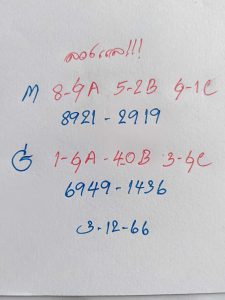 M 8-9A 5-2B 9-1C
8921 - 2919
1-9A - 40B 3-9C
6949 - 1436
3-12-66